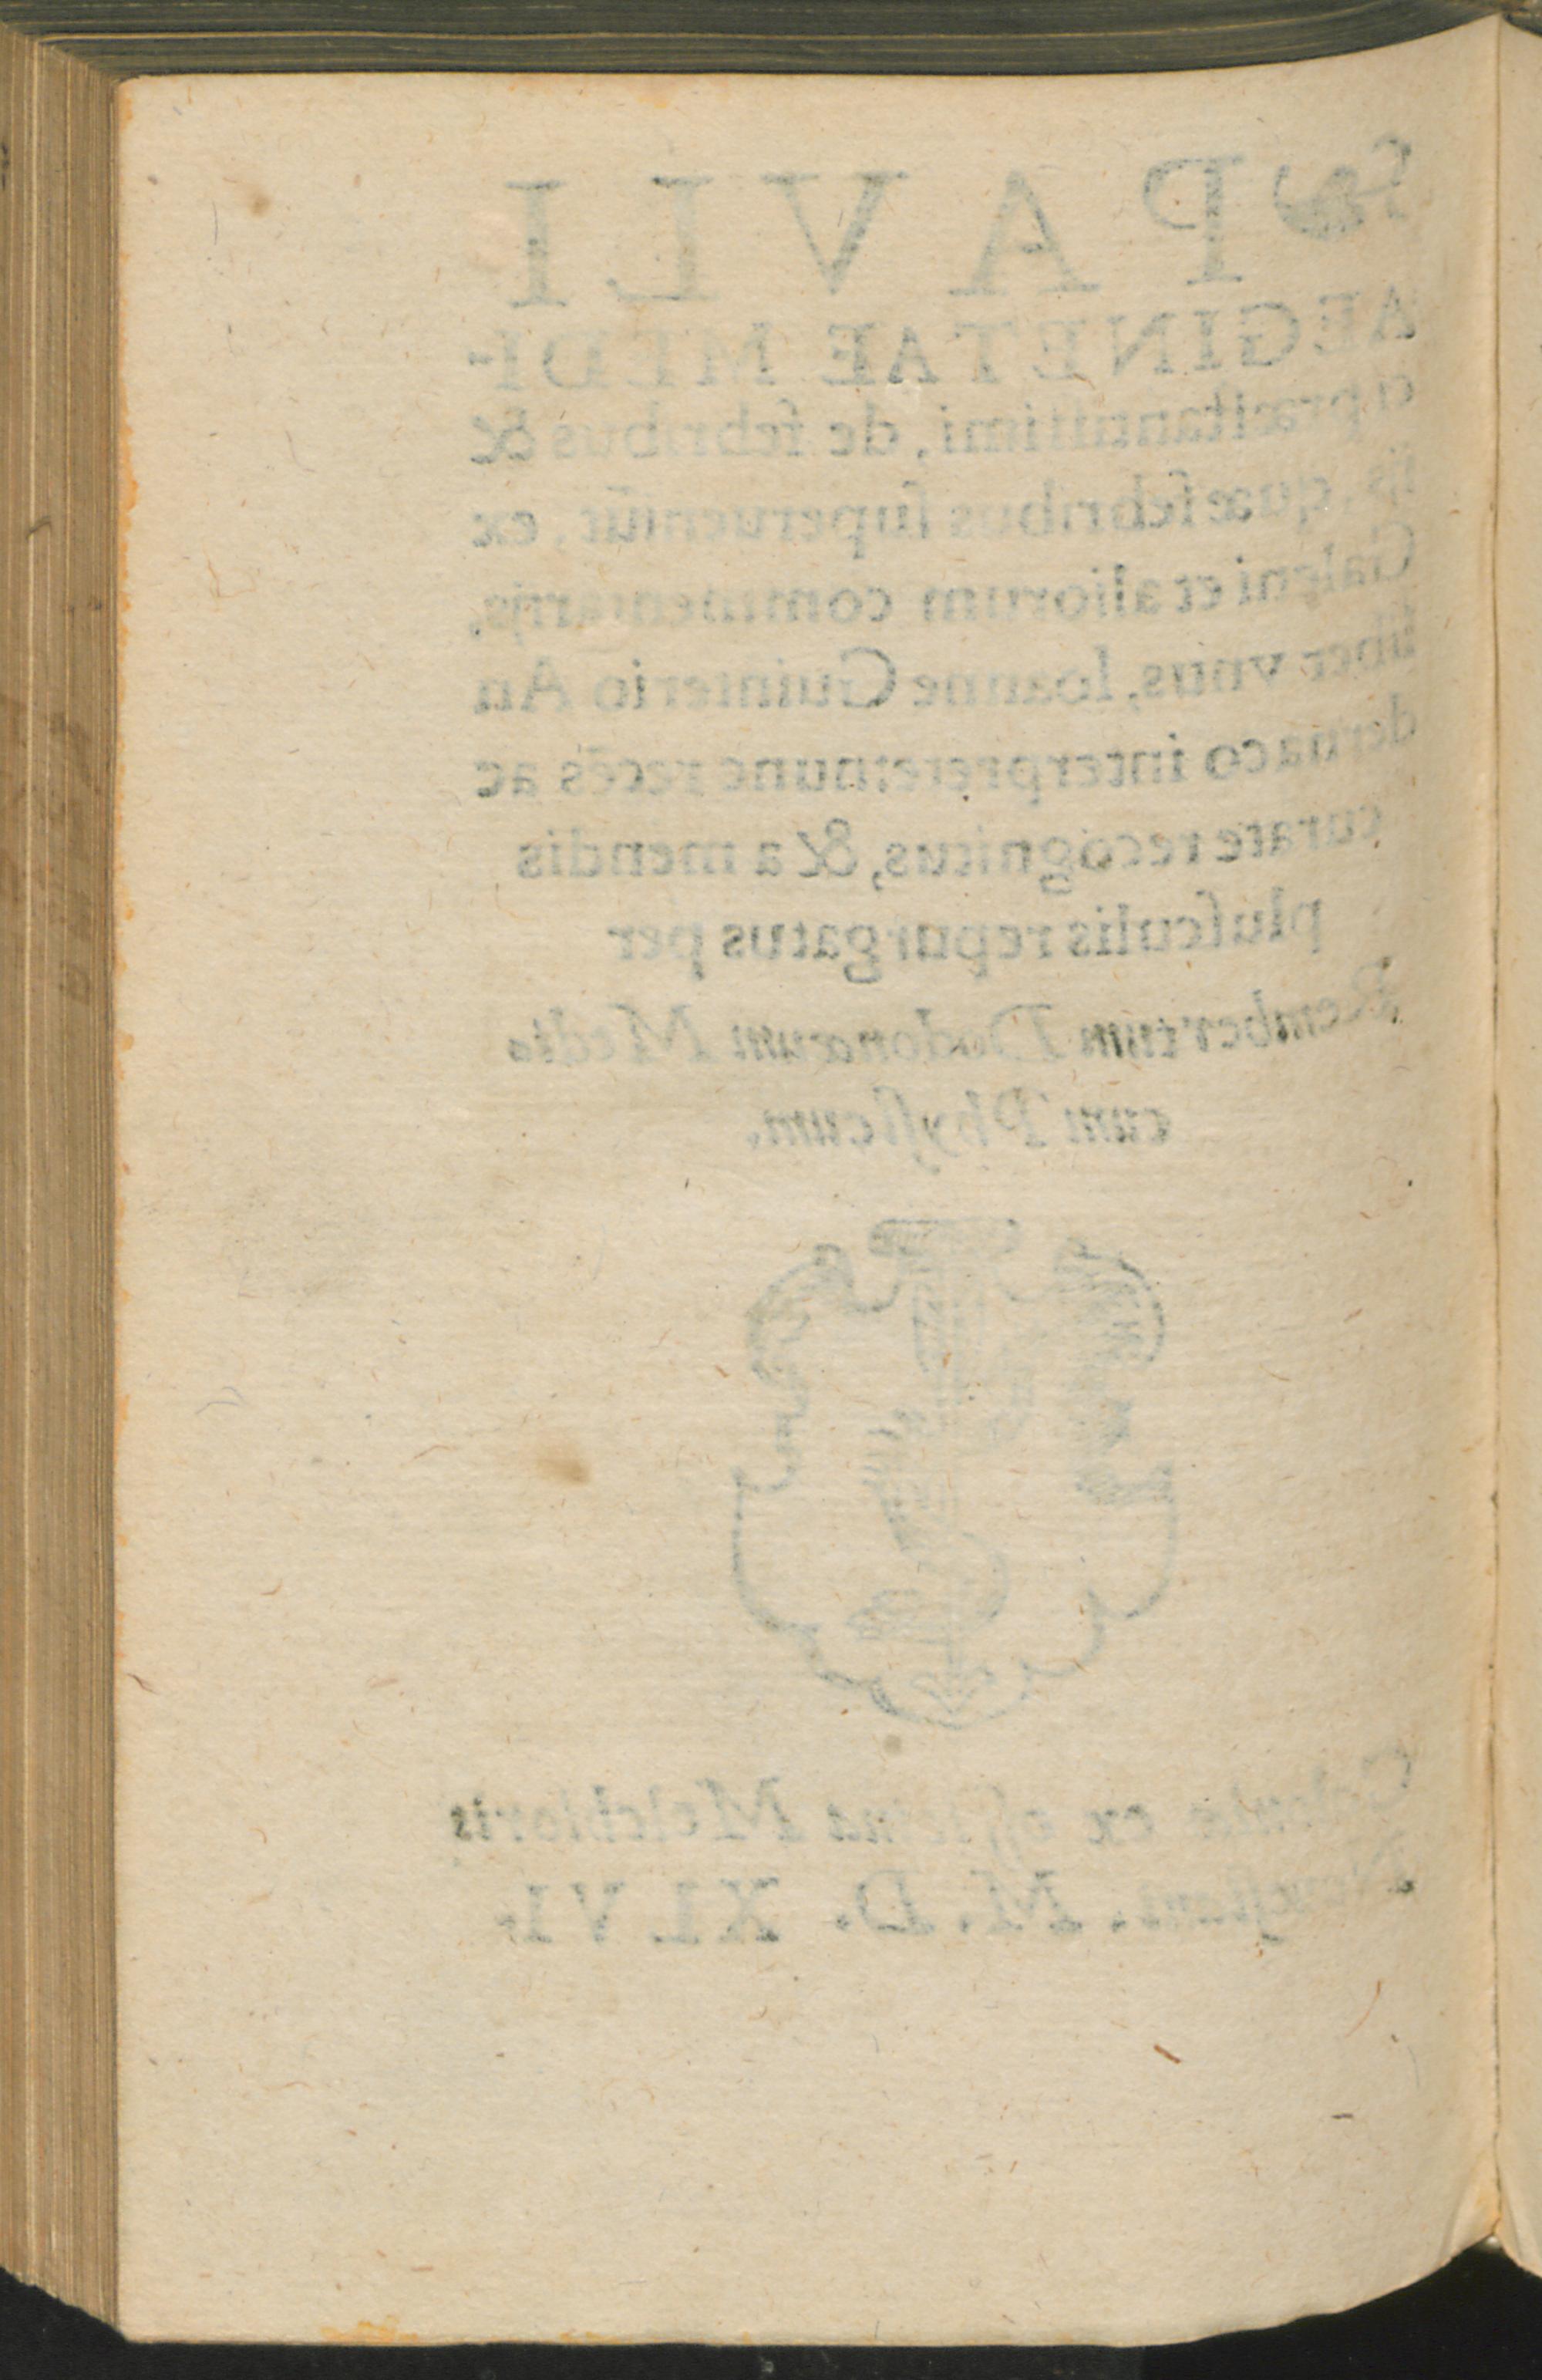 PAVLI
AEGINETAE MEDI-
ci præstantissimi, de febribus &
iis, quæ febribus superueniũt, ex
Galeni et aliorum commentarijs,
liber vnus, Ioanne Guinterio An
dernaco interprete: nunc recẽs ac
curate recognitus, & a mendis
plusculis repurgatus per
Rembertum Dodonæum Medi-
cum Physicum.
ex officina Melchioris
M. D. XLVI.